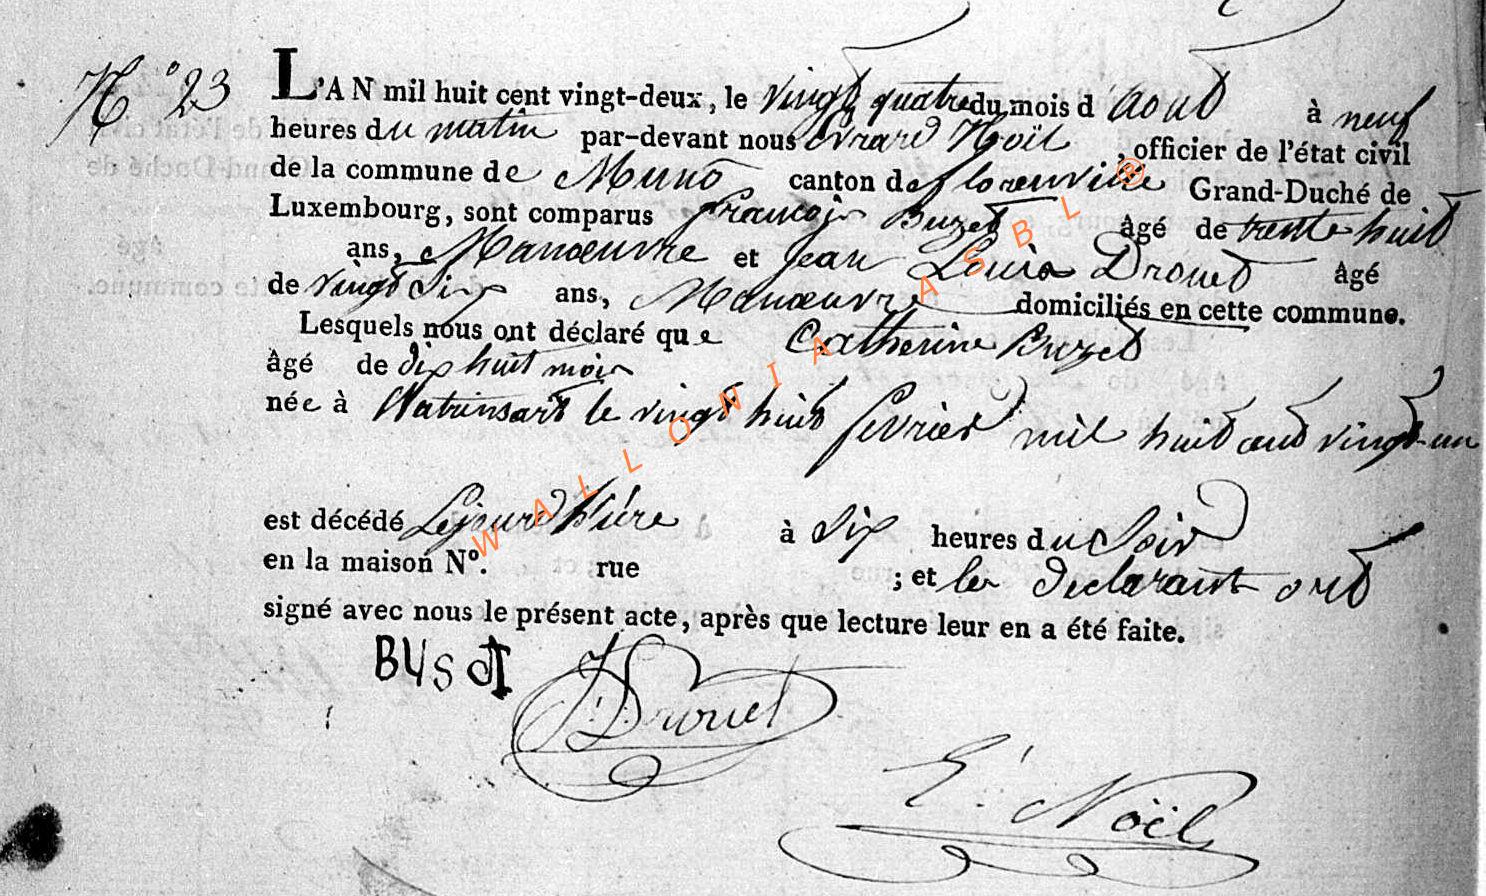 N° 23
L'AN mil huit cent vingt-deux, le vingt quatre du mois d'aout à neuf
heures du matin par-devant nous Evrard Noël, officier de l'état civil
de la commune de Muno canton de florenville Grand-Duché de
Luxembourg, sont comparus françois Buzet âgé de trente huit
ans, Manœuvre et Jean Louis Drouet âgé
de vingt Six ans, Manœuvre domiciliés en cette commune.
Lesquels nous ont déclaré que Catherine Buzet
âgé de dix huit mois
née à Watrinsart le vingt huit fevrier mil huit cent vingt-un
est décédé Le jour d'hiere à Six heures du Soir
en la maison N°. rue ; et les declarant ont
signé avec nous le présent acte, après que lecture leur en a été faite.
J: L: Drouet
E: Noël
WALLONIA ASBL ®